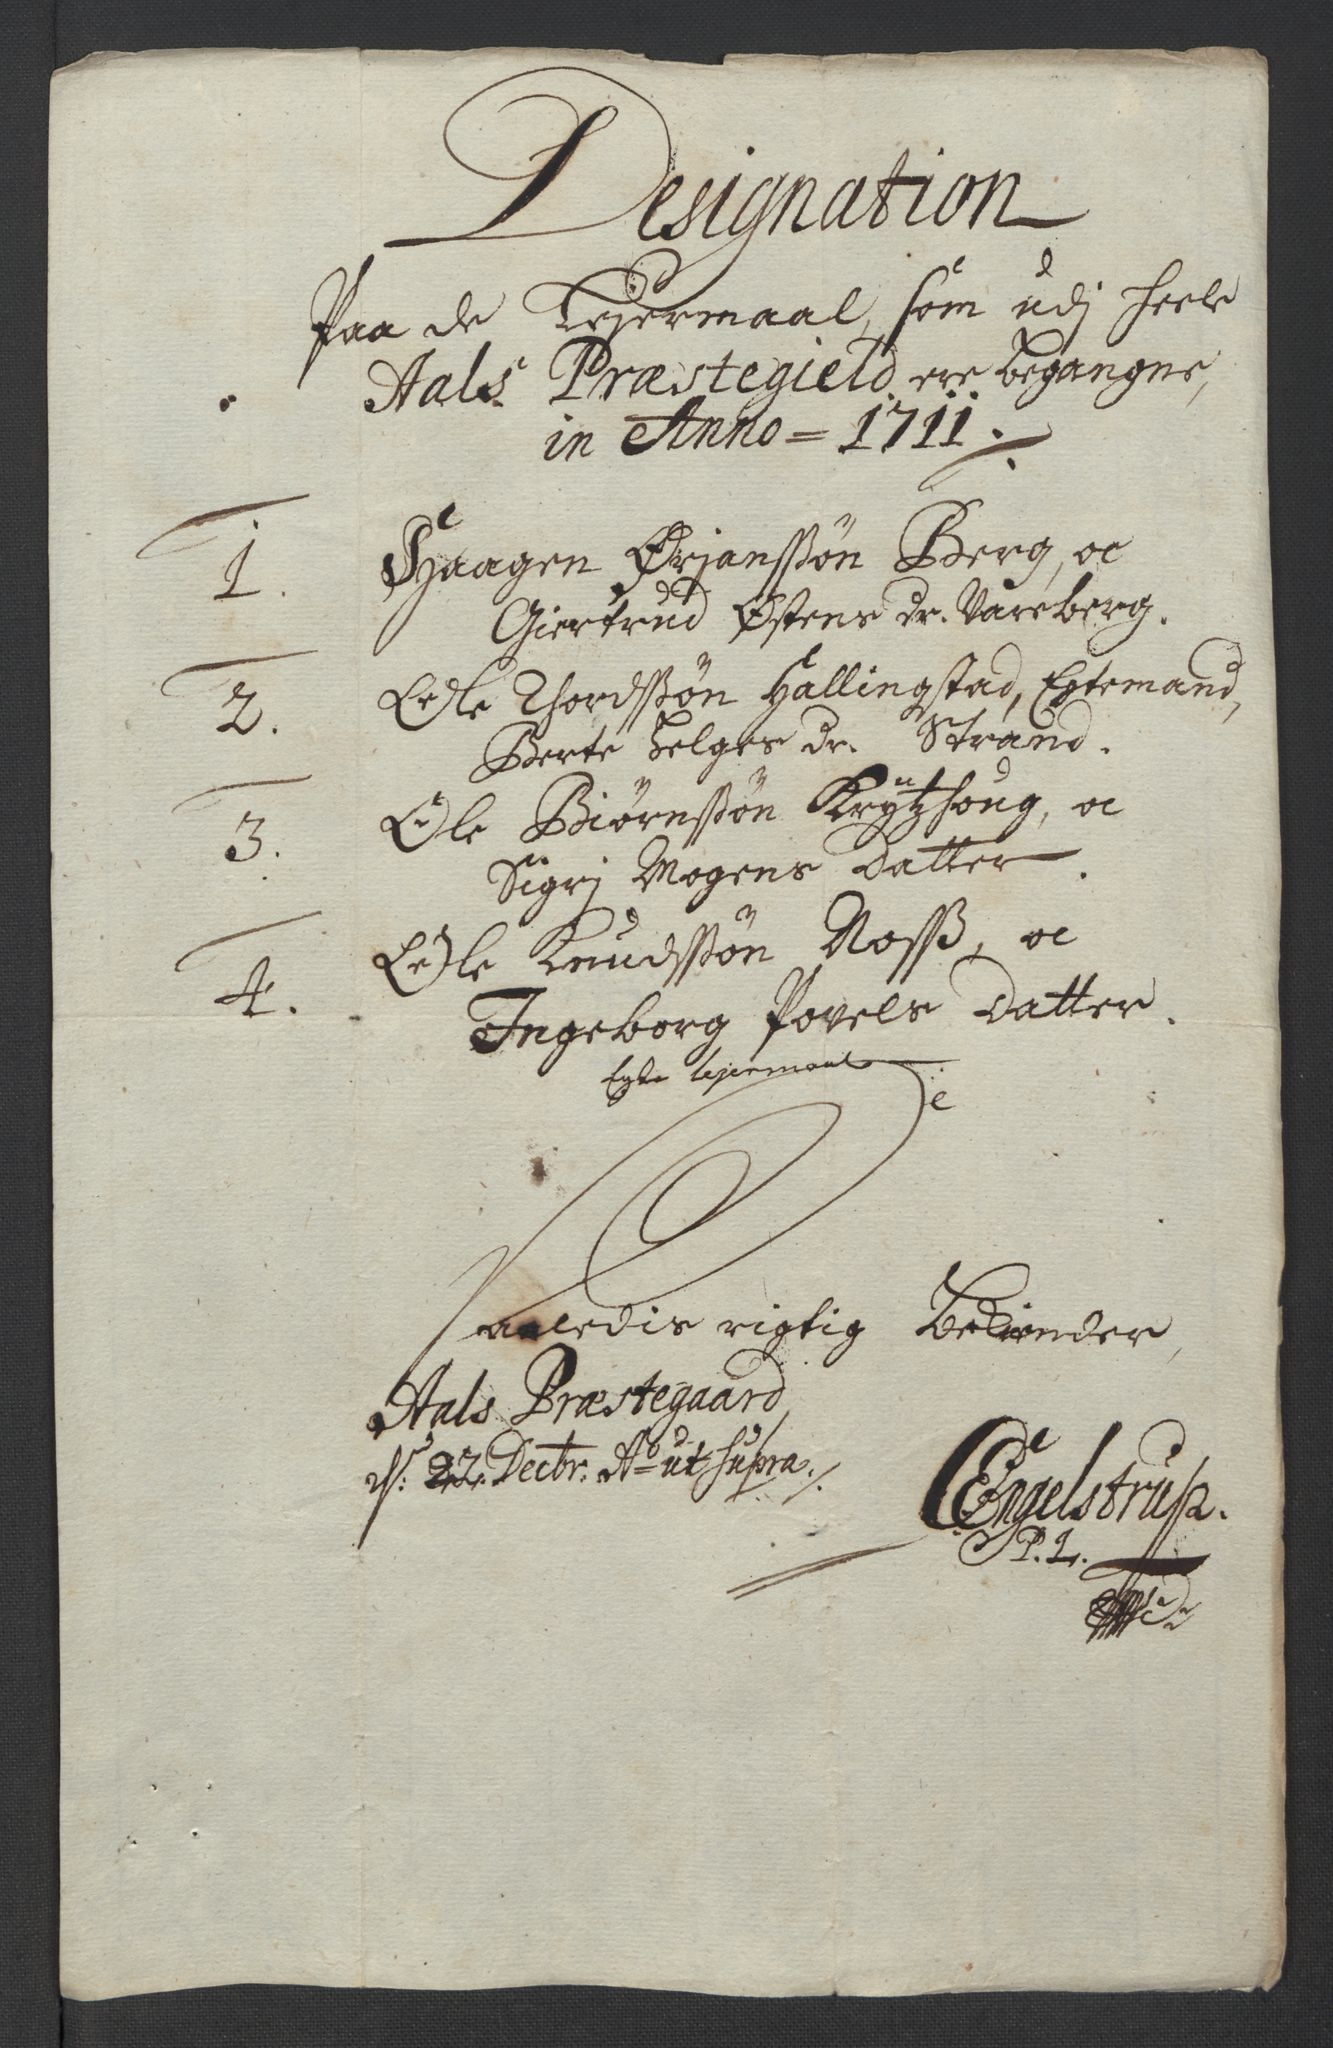 Designation
Paa de Lejermaal, som udj heele
Aals Præstegield ere begangne,
in Anno = 1711.
1. Haagen Ørjanssøn Berg, oc
Giertrud Østens dr. Vareberg.
2. Ole Thordssøn Hallingstad, Egtemand,
Berte Helges dr. Strand.
3. Ole Biørnssøn Krÿtzhoug, oc
Sigrj Mogens Datter.
4. Ole Knudssøn Noss, oc
Ingeborg Povels Datter.
Egte lejermaal
Saaledis rigtig Bekiender,
Aals Præstegaard,
d. 22. Decbr. Ao ut supra.
CEngelstrup.
P. L.